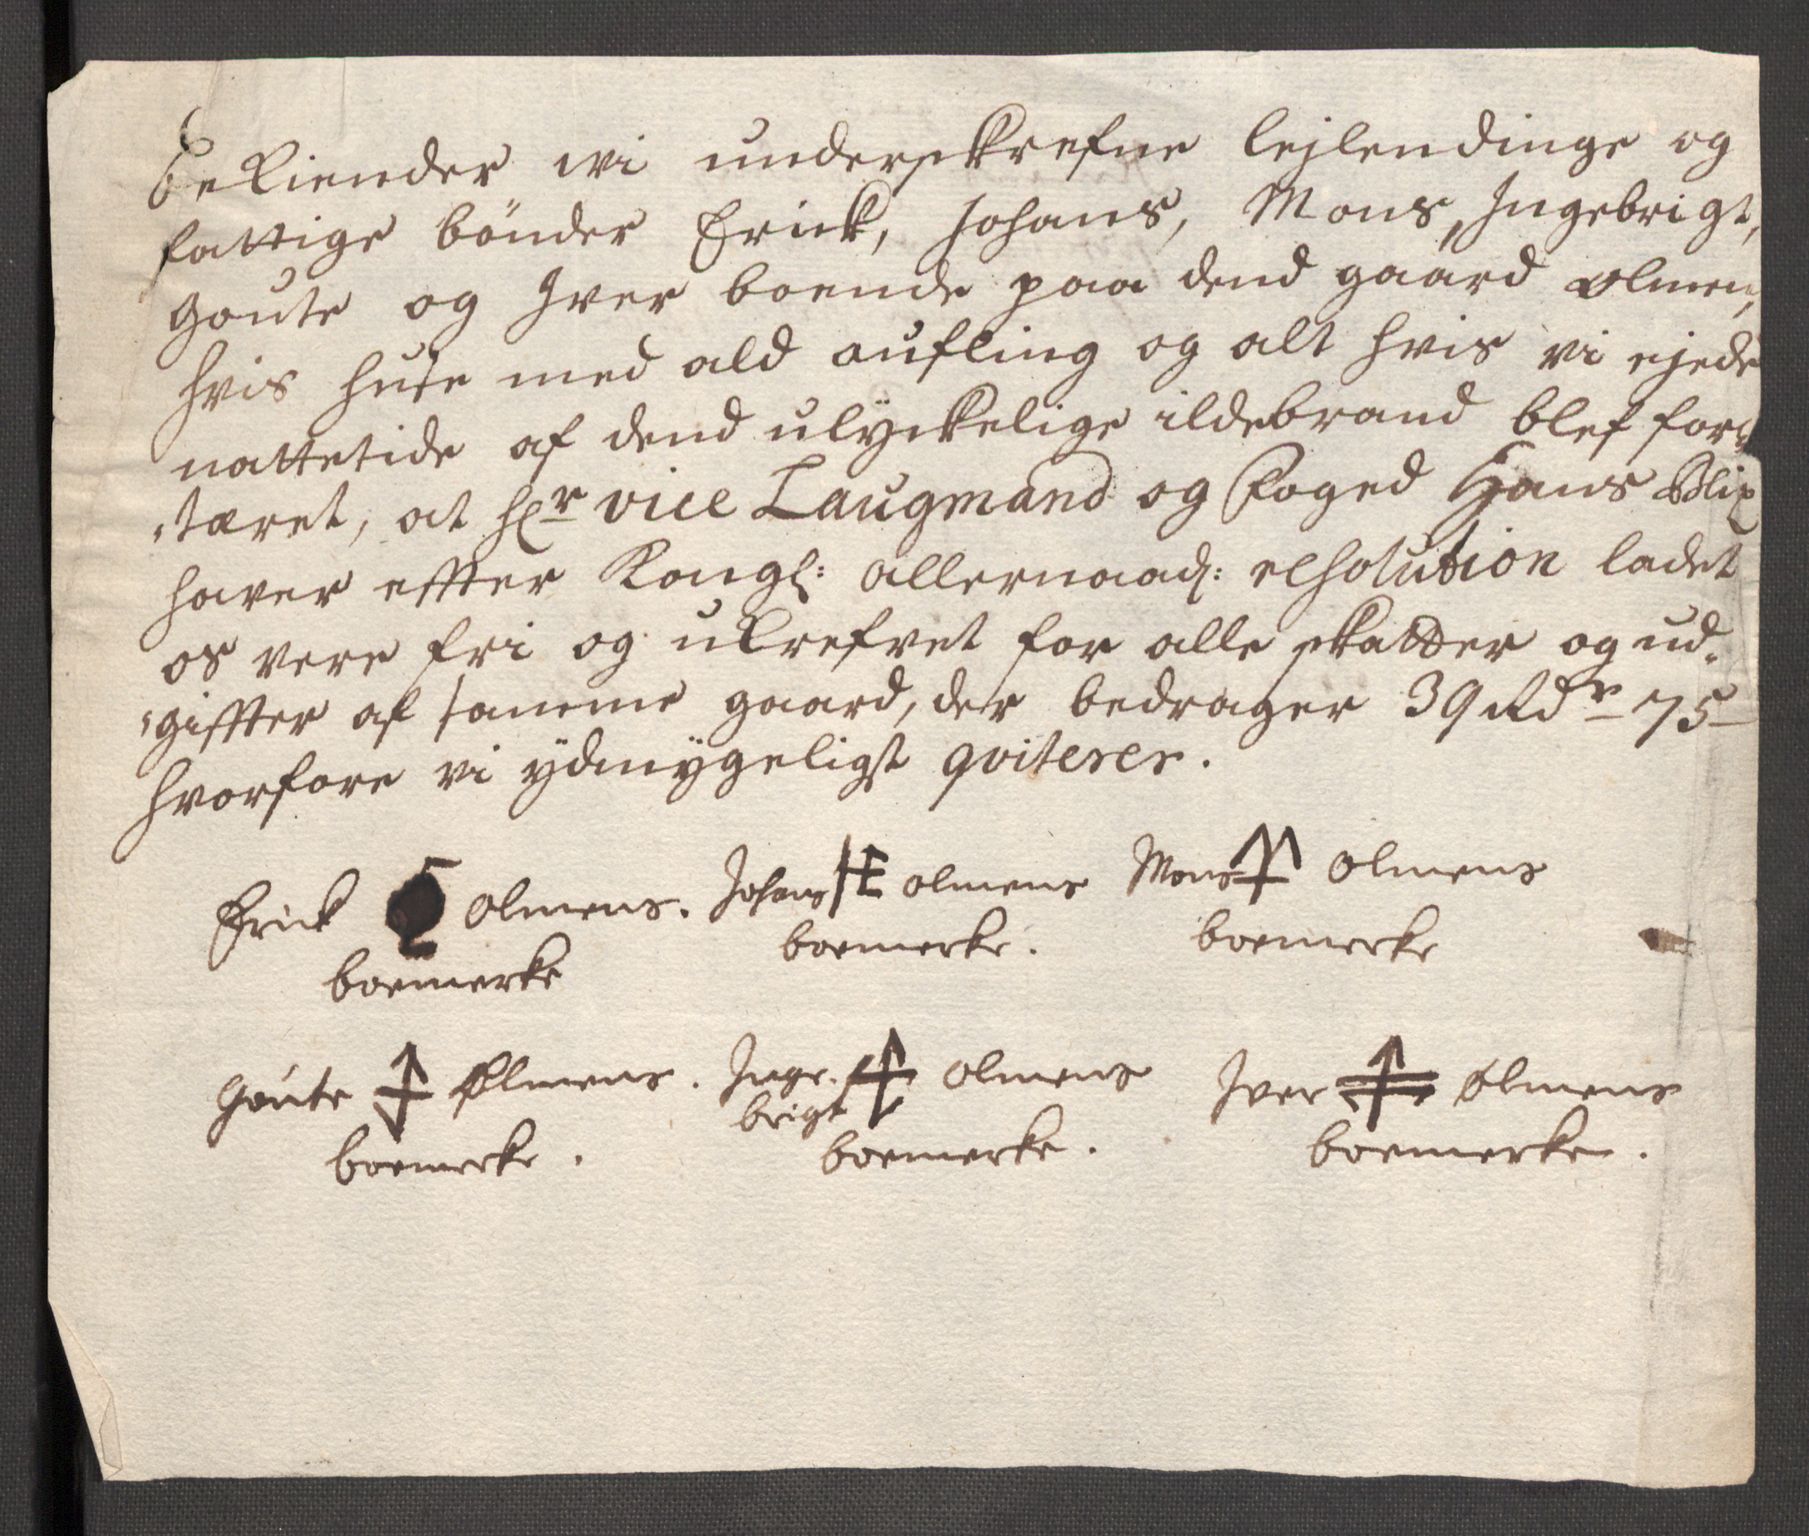 Bekiender wi underskrefne lejlendinge og
fattige bönder Erick, Johans, Mons, Ingebrigt,
Goute og Iver boende paa dend gaard Olmen,
hvis huse med ald aufling og alt hvis vi ejede
nattetide af dend ulyckelige ildebrand blef for-
tæret, at hr vice Laugmand og Foged Hans Blix
haver effter Kongl: allernaad: resholution ladet
os vere fri og ukrefvet for alle skatter og ud-
giffter af samme gaard, der bedrager 39 Rdr 75
hvorfore vi ydmygeligst qviterer.
Erick Olmens. Johans Olmens Mons Olmens
boemerke boemerke. boemerke
Goute Olmens. Inge- Olmens Iver Olmens
brigt
boemerke. boemerke. boemerke.